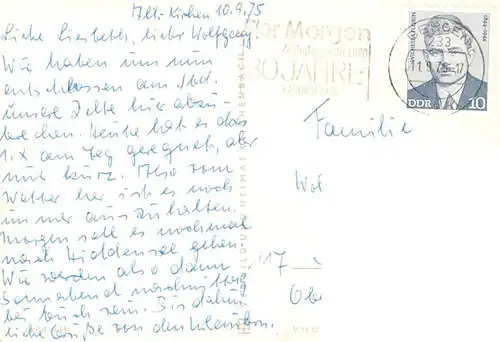 Alt. Kirchen 10.9.75
Liebe Liesbeth, lieber Wolfgang
Wir haben uns nun
entschlossen am Sbd.
unsere Zelte hier abzu-
brechen. Heute hat es das
1. x am Tag geregnet, aber
nur kurz. Also vom
Wetter her ist es noch
immer auszuhalten.
Morgen soll es nochmal
nach Hiddensee gehen.
Wir werden also dann
Sonnabend nachmittag
bei Euch sein. Bis dahin
liebe Grüße von den Kleinken.
Morgen
30 JAHRE
BERGEN
233
1.9.75-17
DDR 10
Familie
Wol
117
Obe